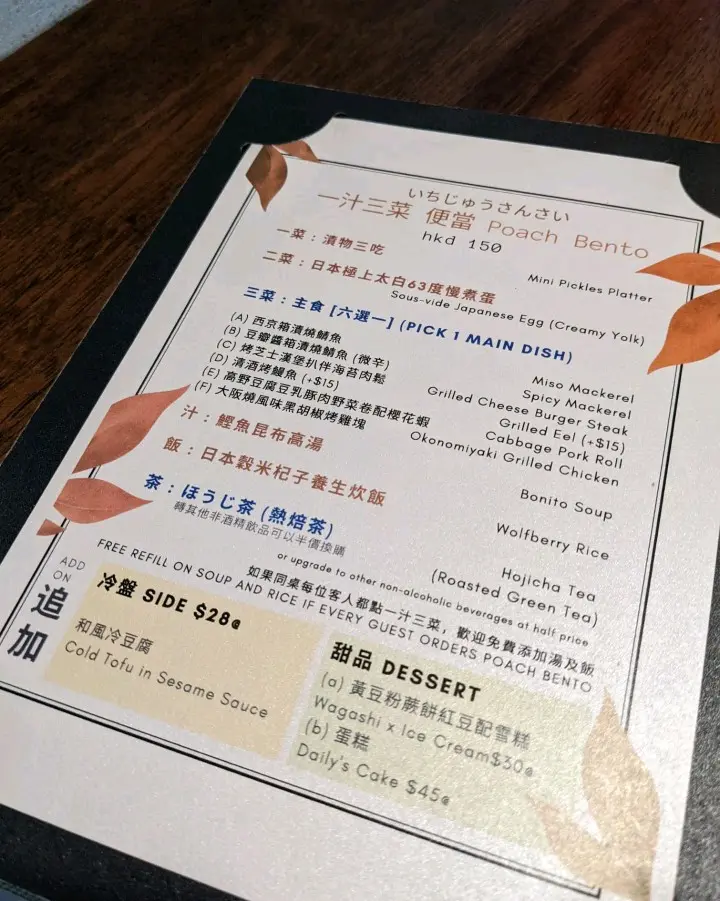 いちじゅうさんさい
一汁三菜 便當 Poach Bento
hkd 150
一菜：漬物三吃
Mini Pickles Platter
二菜：日本極上太白63度慢煮蛋
Sous-vide Japanese Egg (Creamy Yolk)
三菜：主食 [六選一] (PICK 1 MAIN DISH)
(A) 西京箱漬燒鯖魚
Miso Mackerel
(B) 豆瓣醬箱漬燒鯖魚 (微辛)
Spicy Mackerel
(C) 烤芝士漢堡扒伴海苔肉鬆
Grilled Cheese Burger Steak
(D) 清酒烤鰻魚 (+$15)
Grilled Eel (+$15)
(E) 高野豆腐豆乳豚肉野菜卷配櫻花蝦
Cabbage Pork Roll
(F) 大阪燒風味黑胡椒烤雞塊
Okonomiyaki Grilled Chicken
汁：鰹魚昆布高湯
Bonito Soup
飯：日本穀米杞子養生炊飯
Wolfberry Rice
茶：ほうじ茶 (熱焙茶)
Hojicha Tea
(Roasted Green Tea)
轉其他非酒精飲品可以半價換購
or upgrade to other non-alcoholic beverages at half price
如果同桌每位客人都點一汁三菜，歡迎免費添加湯及飯
FREE REFILL ON SOUP AND RICE IF EVERY GUEST ORDERS POACH BENTO
ADD
ON
追
加
冷盤 SIDE $28@
和風冷豆腐
Cold Tofu in Sesame Sauce
甜品 DESSERT
(a) 黃豆粉蕨餅紅豆配雪糕
Wagashi x Ice Cream$30@
(b) 蛋糕
Daily's Cake $45@